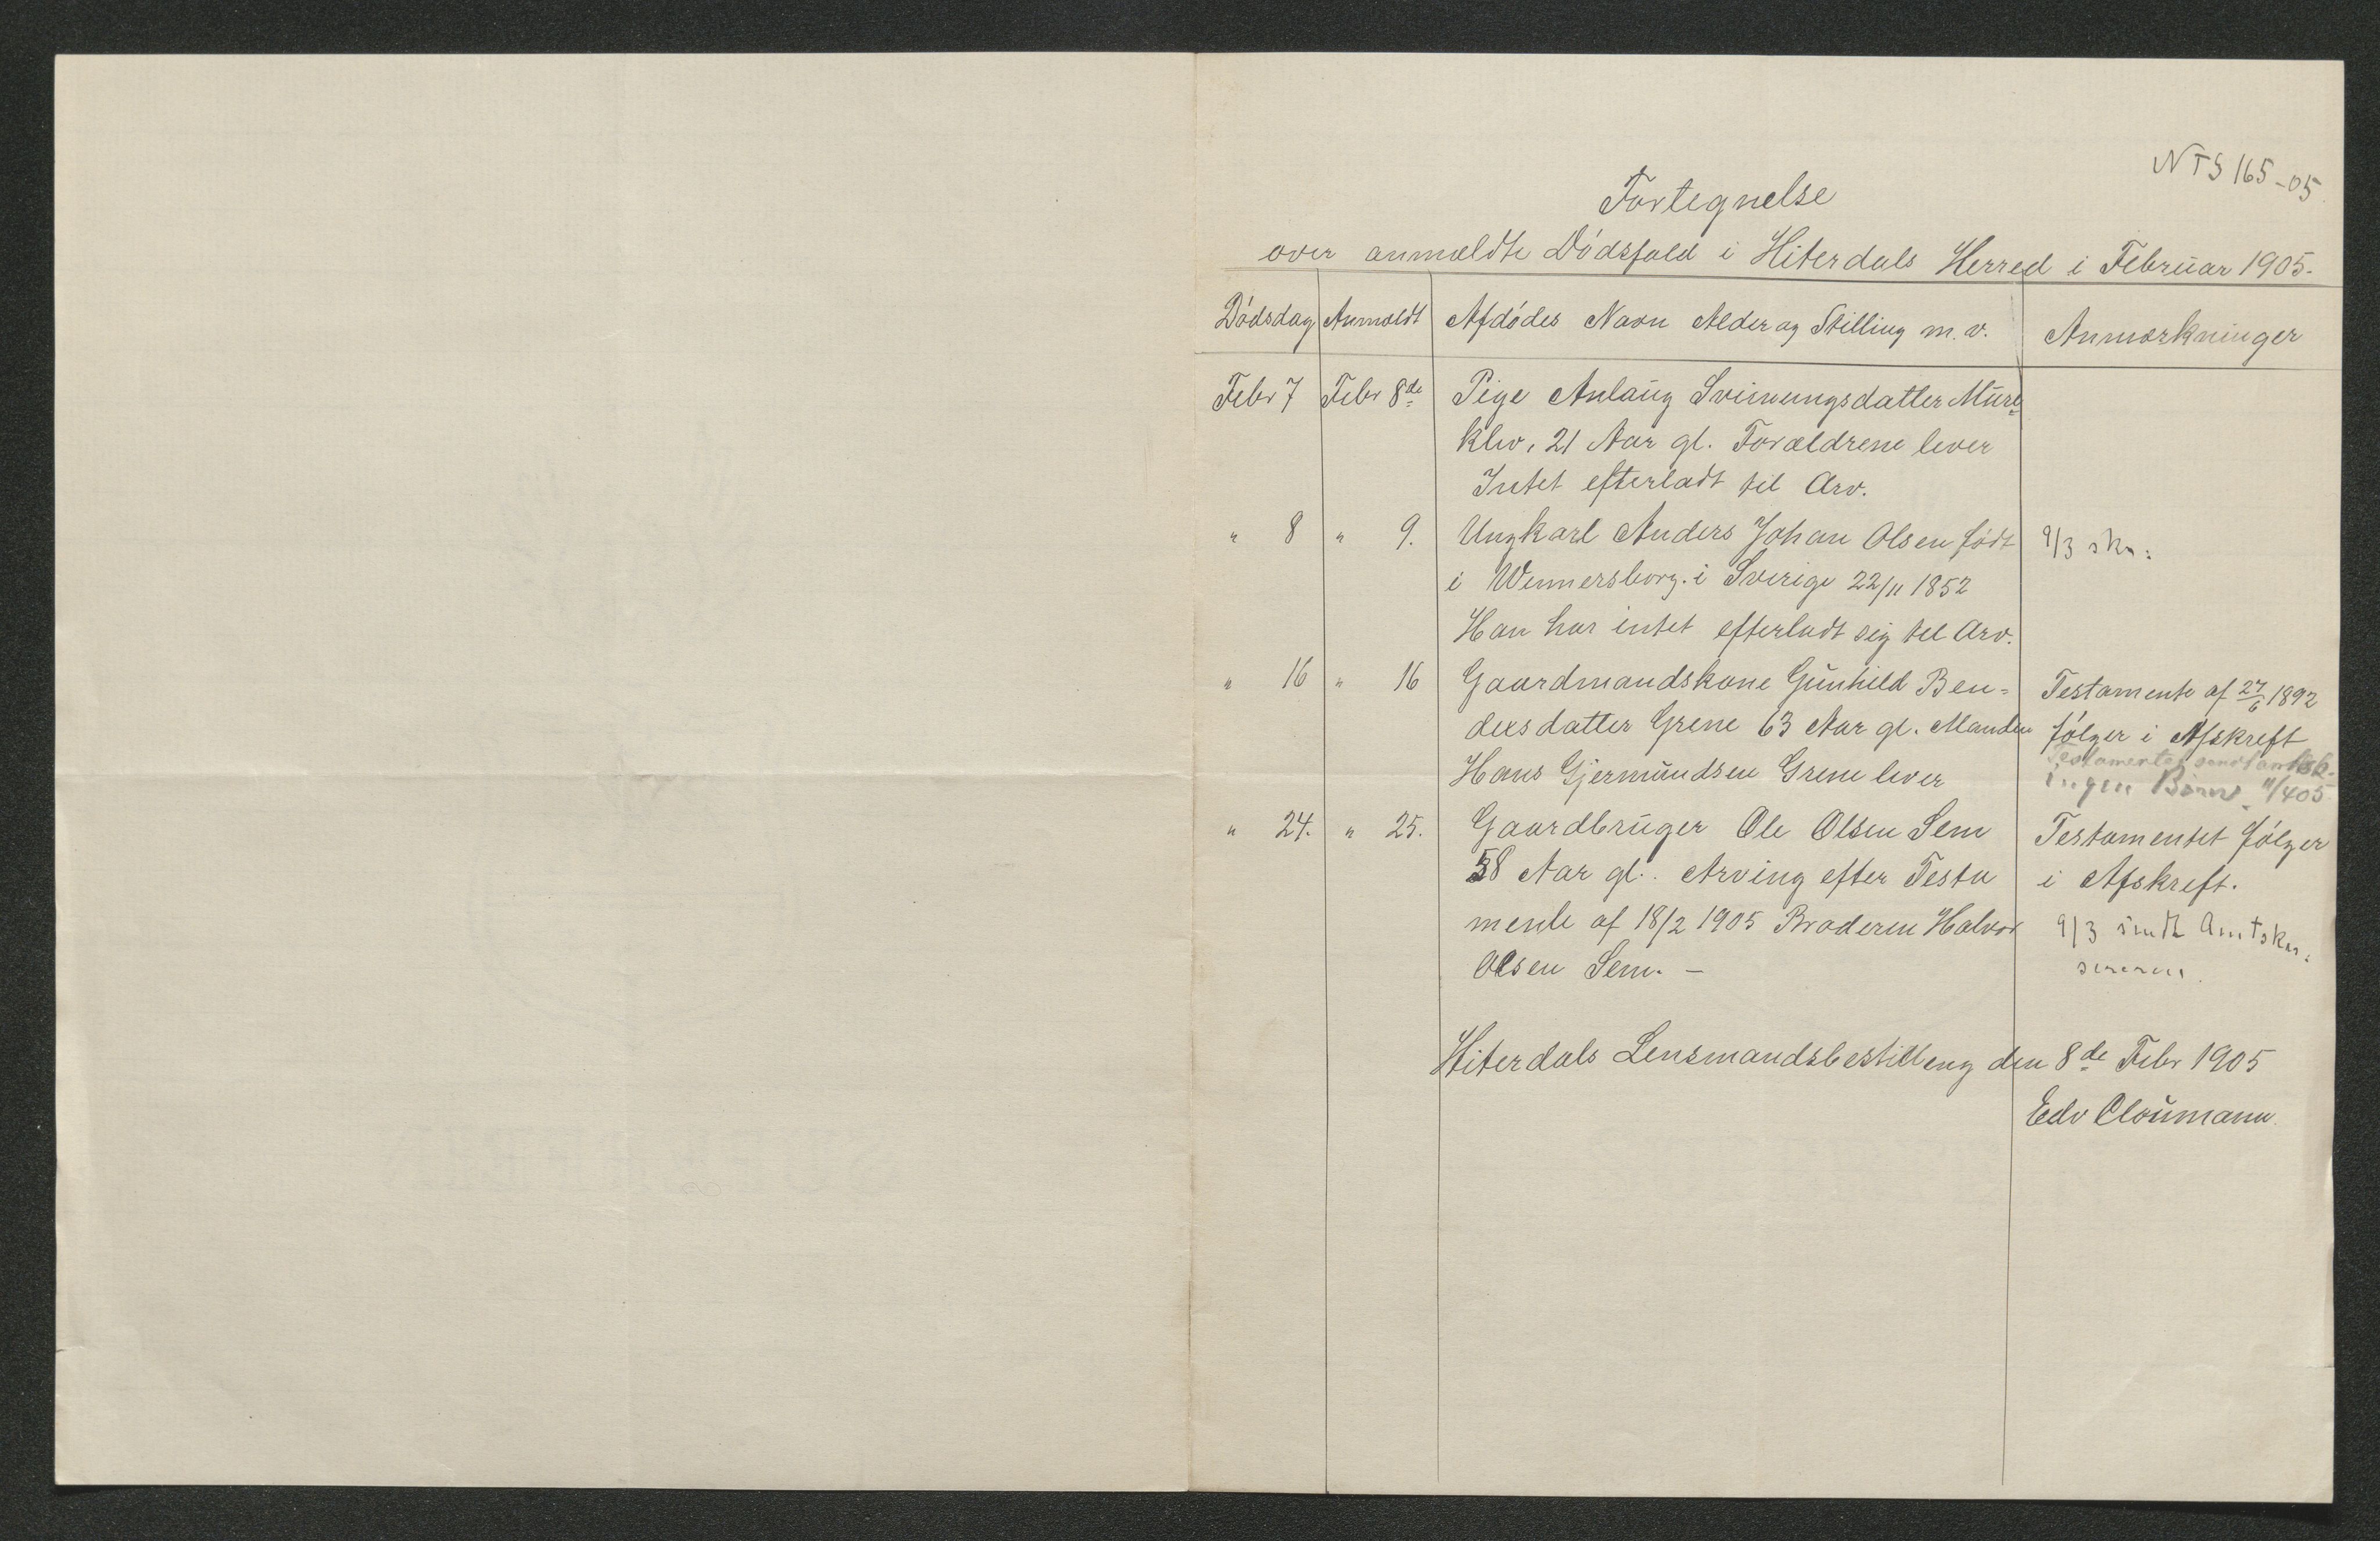 NTS 165-05
Fortegnelse
over anmeldte Dødsfald i Hiterdals Herred i Februar 1905.
Dødsdag Anmeldt Afdødes Navn Alder og Stilling m.v. Anmærkninger
Febr 7 Febr 8de Pige Anlaug Svinungsdatter Mure
klev, 21 Aar gl. Forældrene lever
Intet efterladt til Arv.
" 8 " 9. Ungkarl Anders Johan Olsen født 9/3 skr:
i Wennersborg i Sverige 22/11 1852
Han har intet efterladt sig til Arv.
" 16 " 16 Gaardmandskone Gunhild Ben= Testamente af 27/6 1892
dixsdatter Grene 63 Aar gl. Manden følger i Afskrift
Hans Gjermundsen Grene lever Testamentet sendt
ingen Børn. 11/4 05
" 24. " 25. Gaardbruger Ole Olsen Sem Testamentet følger
58 Aar gl.. Arving efter Testa i Afskrift.
mente af 18/2 1905 Broderen Halvor 9/3 sendt Amtskas:
Olsen Sem. — sereren
Hiterdals Lensmandsbestilling den 8de Febr 1905
Edv Cloumann.